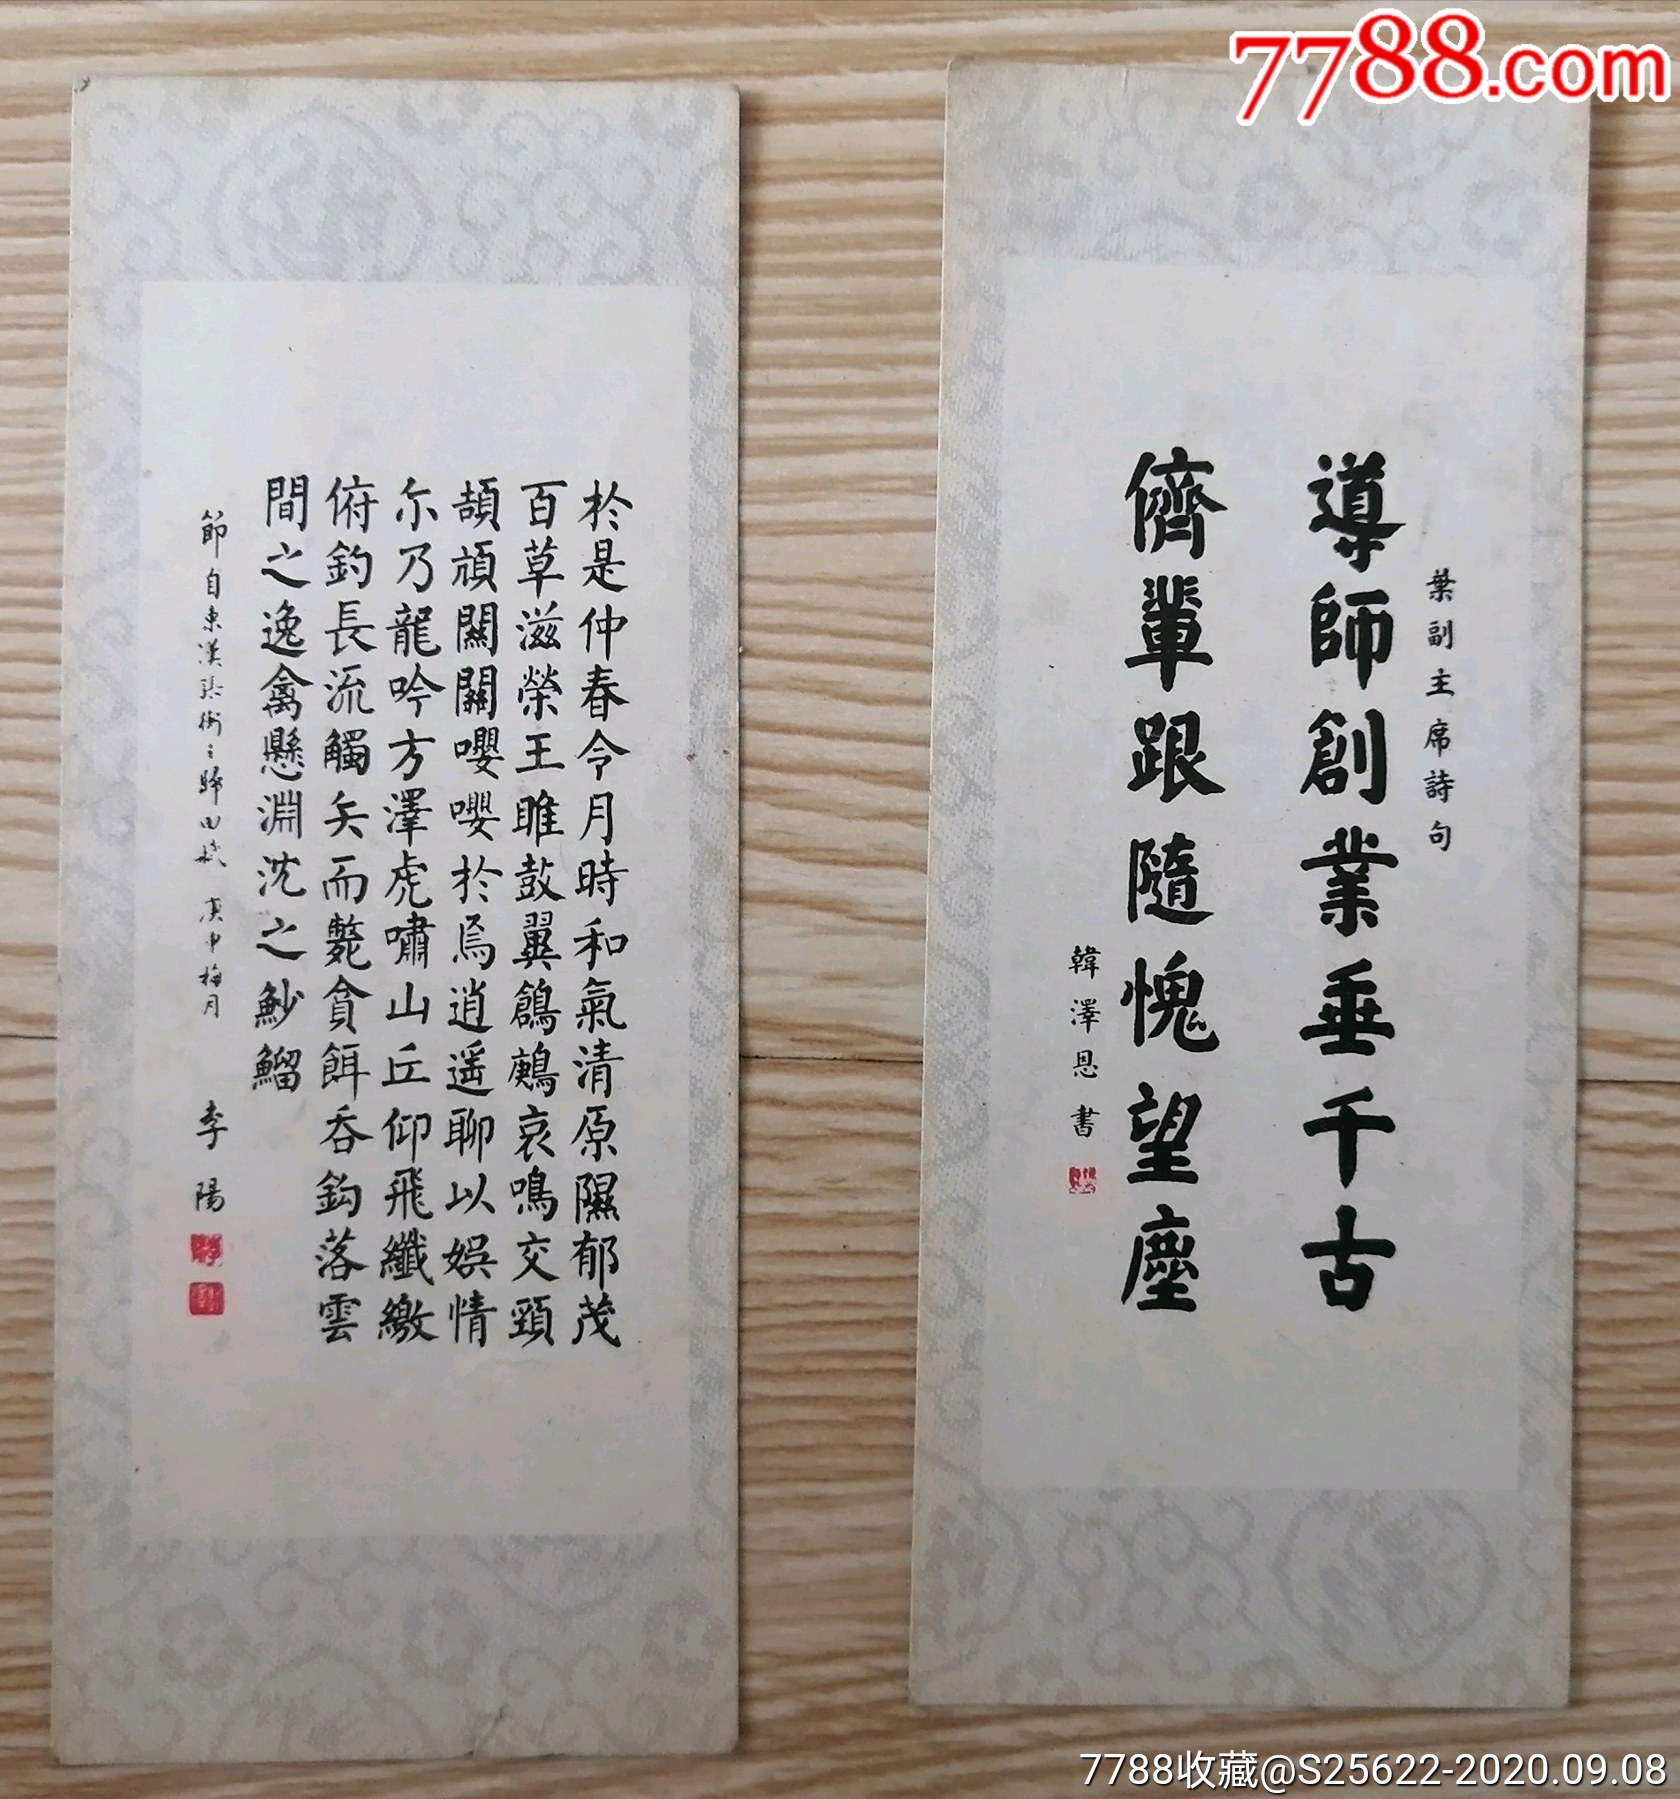 7788.com
於是仲春令月時和氣清原隰郁茂
百草滋榮王雎鼓翼鶬鶊哀鳴交頸
頡頏關關嚶嚶於焉逍遥聊以娛情
尒乃龍吟方澤虎嘯山丘仰飛纖繳
俯釣長流觸矢而斃貪餌吞鈎落雲
間之逸禽懸淵沈之魦鰡
節自東漢張衡之歸田賦 庚申梅月 李陽
葉副主席詩句
導師創業垂千古
儕輩跟隨愧望塵
韓澤恩書
7788收藏@S25622-2020.09.08